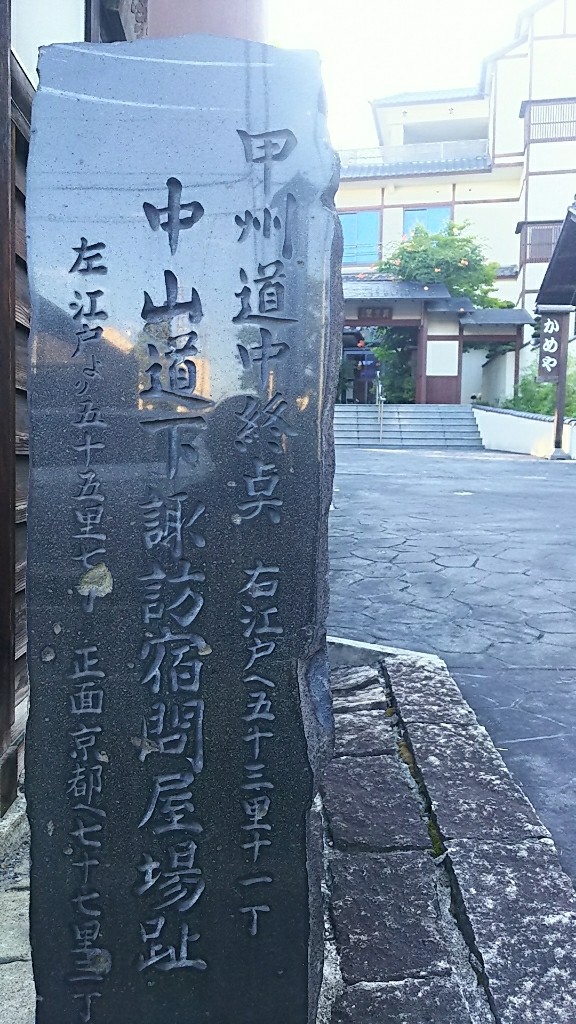 甲州道中終点 右江戸へ五十三里十一丁
中山道下諏訪宿問屋場趾
左江戸より五十五里七丁 正面京都へ七十七里三丁
かめや